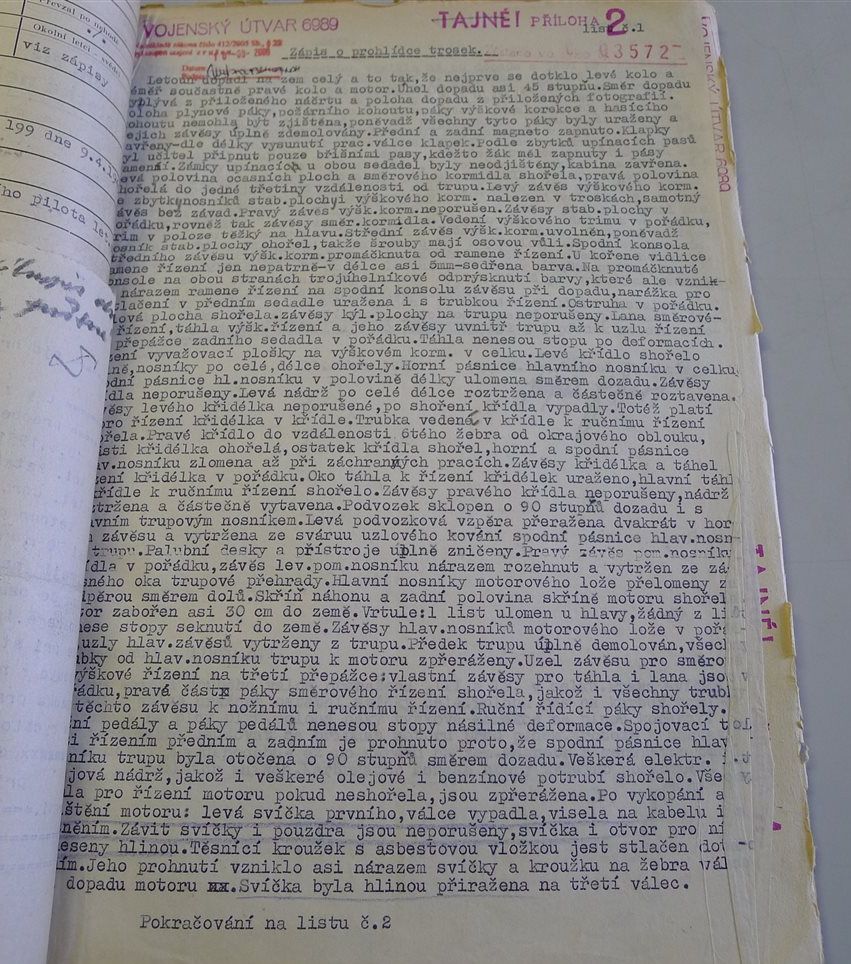 převzal po nehodě
Okolní letci - svědci
viz zápisy
199 dne 9.4.
ho pilota
VOJENSKÝ ÚTVAR 6989
TAJNÉ!
PŘÍLOHA 2
list č.1
03572
VOJENSKÝ ÚTVAR 6989
Datum
Zápis o prohlídce trosek.
Letoun dopadl na zem celý a to tak,že nejprve se dotklo levé kolo a
měř součastně pravé kolo a motor.Úhel dopadu asi 45 stupňů.Směr dopadu
plývá z přiloženého náčrtu a poloha dopadu z přiložených fotografií.
oloha plynové páky,požárního kohoutu,páky výškové korekce a hasícího
ohoutu nemohla být zjištěna,poněvadž všechny tyto páky byly uraženy a
ejich závěsy úplně zdemolovány.Přední a zadní magneto zapnuto.Klapky
avřeny-dle délky vysunutí prac.válce klapek.Podle zbytků upínacích pasů
yl učitel připnut pouze břišními pasy,kdežto žák měl zapnuty i pásy
amení.Zámky upínacích u obou sedadel byly neodjištěny,kabina zavřena.
evá polovina ocasních ploch a směrového kormidla shořela,pravá polovina
hořela do jedné třetiny vzdálenosti od trupu.Levý závěs výškového korm.
e zbytky nosníků stab.plochyi výškového korm. nalezen v troskách,samotný
ávěs bez závad.Pravý závěs výšk.korm.neporušen.Závěsy stab.plochy v
ořádku,rovněž tak závěsy směr.kormidla.Vedení výškového trimu v pořádku,
rim v poloze těžký na hlavu.Střední závěs výšk.korm.uvolněn,poněvadž
osník stab.plochy ohořel,takže šrouby mají osovou vůli.Spodní konsola
tředního závěsu výšk.korm.promáčknuta od ramene řízení.U kořene vidlice
amene řízení jen nepatrně-v délce asi 5mm-sedřena barva.Na promáčknuté
onsole na obou stranách trojúhelníkové odprýsknutí barvy,které ale vznik-
nárazem ramene řízení na spodní konsolu závěsu při dopadu,narážka pro
tlačení v předním sedadle uražena i s trubkou řízení.Ostruha v pořádku.
lová plocha shořela.závěsy kýl.plochy na trupu neporušeny.Lana směrové-
řízení,táhla výšk.řízení a jeho závěsy uvnitř trupu až k uzlu řízení
přepážce zadního sedadla v pořádku.Táhla nenesou stopu po deformacích.
ení vyvažovací plošky na výškovém korm. v celku.Levé křídlo shořelo
ně,nosníky po celé,délce ohořely.Horní pásnice hlavního nosníku v celku,
odní pásnice hl.nosníku v polovině délky ulomena směrem dozadu.Závěsy
ídla neporušeny.Levá nádrž po celé délce roztržena a částečně roztavena.
ěsy levého křidélka neporušené,po shoření křídla vypadly.Totéž platí
pro řízení křidélka v křídle.Trubka vedené v křídle k ručnímu řízení
ořela.Pravé křídlo do vzdálenosti 6tého žebra od okrajového oblouku,
ásti křidélka ohořelá,ostatek křídla shořel,horní a spodní pásnice
av.nosníku zlomena až při záchraných pracích.Závěsy křidélka a táhel
zení křidélka v pořádku.Oko táhla k řízení křidélek uraženo,hlavní táhl
křídle k ručnímu řízení shořelo.Závěsy pravého křídla neporušeny,nádrž
ztržena a částečně vytavena.Podvozek sklopen o 90 stupňů dozadu i s
avním trupovým nosníkem.Levá podvozková vzpěra přeražena dvakrát v hor
závěsu a vytržena ze sváruu uzlového kování spodní pásnice hlav.nosn-
trupu.Palubní desky a přístroje úplně zničeny.Pravý závěs pom.nosníku
ídla v pořádku,závěs lev.pom.nosníku nárazem rozehnut a vytržen ze zá-
sného oka trupové přehrady.Hlavní nosníky motorového lože přelomeny z
pěrou směrem dolů.Skříň náhonu a zadní polovina skříně motoru shořel
tor zabořen asi 30 cm do země.Vrtule:1 list ulomen u hlavy,žádný z li
nese stopy seknutí do země.Závěsy hlav.nosníků motorového lože v pořá
uzly hlav.závěsů vytrženy z trupu.Předek trupu úplně demolován,všec
ubky od hlav.nosníku trupu k motoru zpřeráženy.Uzel závěsu pro směro
výškové řízení na třetí přepážce:vlastní závěsy pro táhla i lana jsou v
řádku,pravá částx páky směrového řízení shořela,jakož i všechny trub
těchto závěsu k nožnímu i ručnímu řízení.Ruční řídící páky shořely.
ní pedály a páky pedálů nenesou stopy násilné deformace.Spojovací t
i řízením předním a zadním je prohnuto proto,že spodní pásnice hlav
níku trupu byla otočena o 90 stupňů směrem dozadu.Veškerá elektr. i
ejová nádrž,jakož i veškeré olejové i benzínové potrubí shořelo.Vše
la pro řízení motoru pokud neshořela,jsou zpřerážena.Po vykopání a
ištění motoru: levá svíčka prvního,válce vypadla,visela na kabelu i
něním.Závit svíčky i pouzdra jsou neporušeny,svíčka i otvor pro ní
eseny hlinou.Těsnící kroužek s asbestovou vložkou jest stlačen dot
ím.Jeho prohnutí vzniklo asi nárazem svíčky a kroužku na žebra vál
dopadu motoru xx.Svíčka byla hlinou přiražena na třetí válec.
Pokračování na listu č.2
TAJNÉ!